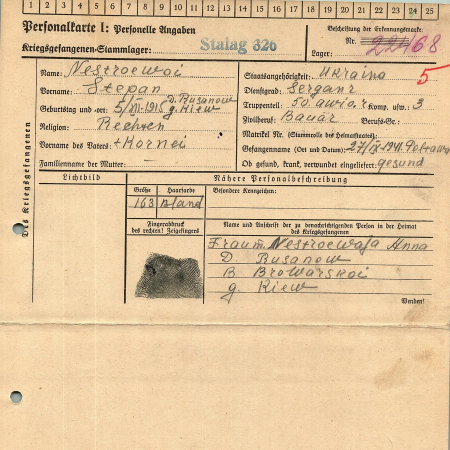 1 2 3 4 5 6 7 8 9 10 11 12 13 14 15 16 17 18 19 20 21 22 23 24 25
Personalkarte I: Personelle Angaben
Kriegsgefangenen-Stammlager: Stalag 326
Beschriftung der Erkennungsmarke
Nr. 68
Lager:
Des Kriegsgefangenen
Name: Nestroewoi
Vorname: Stepan
Geburtstag und -ort: 5/VII-1915 D. Rusanow g. Kiew
Religion:
Vorname des Vaters: + Kornei
Familienname der Mutter:
Staatsangehörigkeit: Ukraino 5
Dienstgrad: Serganr
Truppenteil: 50. awia. r Komp. usw.: 3
Zivilberuf: Bauär Berufs-Gr.:
Matrikel Nr. (Stammrolle des Heimatstaates):
Gefangennahme (Ort und Datum): 27/IX-1941. Poltawa
Ob gesund, krank, verwundet eingeliefert: gesund
Lichtbild
Nähere Personalbeschreibung
Größe Haarfarbe Besondere Kennzeichen:
163 bland
Fingerabdruck
des rechten! Zeigefingers
Name und Anschrift der zu benachrichtigenden Person in der Heimat
des Kriegsgefangenen
Frau m. Nestroewaja Anna
D Rusanow
B Browarskoi
g. Kiew
Wenden!